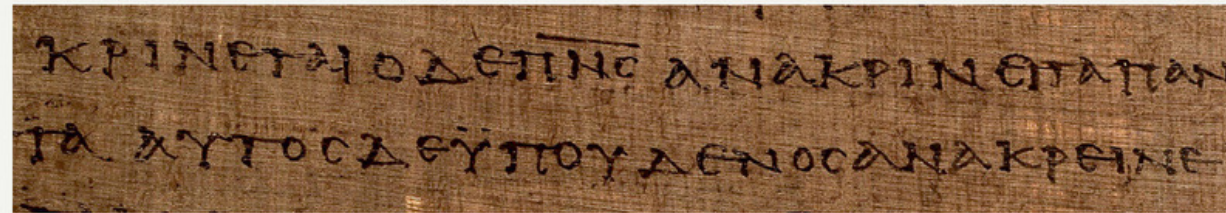 ΚΡΙΝΕΤΑΙ Ο ΔΕ Π̅Ν̅Ϲ̅ ΑΝΑΚΡΙΝΕΙ ΤΑ ΠΑΝ
ΤΑ ΑΥΤΟϹ ΔΕ ΫΠ ΟΥΔΕΝΟϹ ΑΝΑΚΡΕΙΝΕ